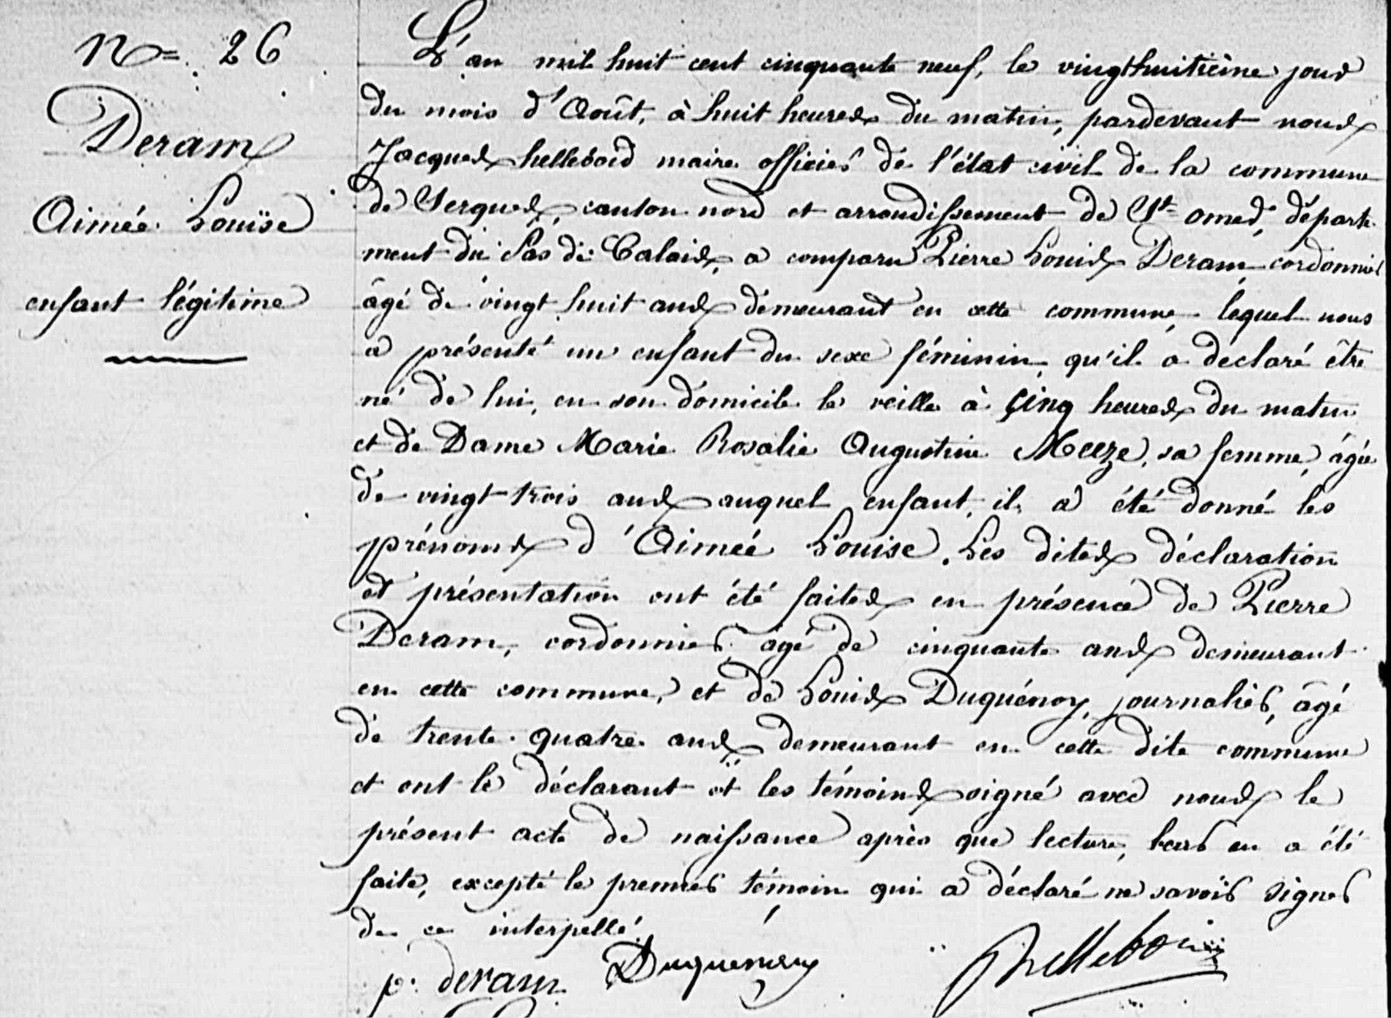 N° 26
Deram
Aimée Louïse
enfant légitime
L'an mil huit cent cinquante neuf, le vingthuitième jour
du mois d'Août, à huit heures du matin, pardevant nous
Jacques helleboid maire officier de l'état civil de la commune
de Serques, canton nord et arrondissement de St omer, départe-
ment du Pas de Calais, a comparu Pierre Louis Deram cordonnier
âgé de vingt huit ans demeurant en cette commune, lequel nous
a présenté un enfant du sexe féminin, qu'il a déclaré être
né de lui, en son domicile le veille à cinq heures du matin
et de Dame Marie Rosalie Augustine Meeze, sa femme, âgée
de vingt trois ans auquel enfant, il a été donné les
prénoms d'Aimeé Louise. Les dites déclaration
et présentation ont été faites en présence de Pierre
Deram, cordonnier, agé de cinquante ans demeurant
en cette commune, et de Louis Duquénoy, journalier, âgé
de trente quatre ans demeurant en cette dite commune
et ont le déclarant et les témoins signé avec nous le
présent acte de naissance après que lecture, leur en a été
faite, excepté le premier témoin qui a déclaré ne savoir signer
de ce interpellé
p. deram Duquenoy helleboid